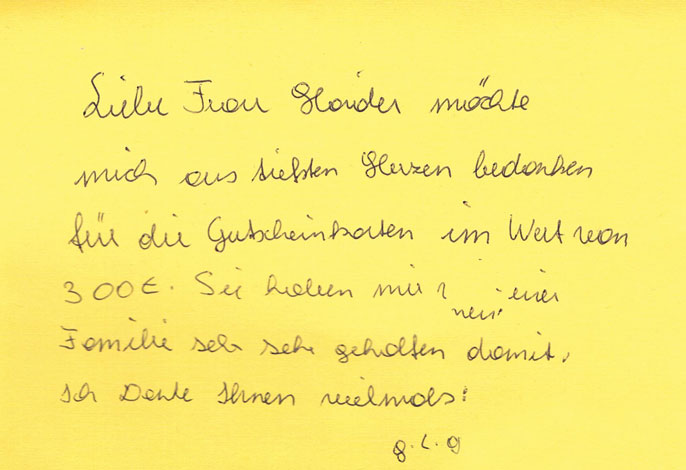 Liebe Frau Haider möchte
mich aus tiefsten Herzen bedanken
für die Gutscheinkarten im Wert von
300€. Sie haben mir
Familie sehr sehr geholfen damit.
Ich Danke Ihnen vielmals!
g.L.g